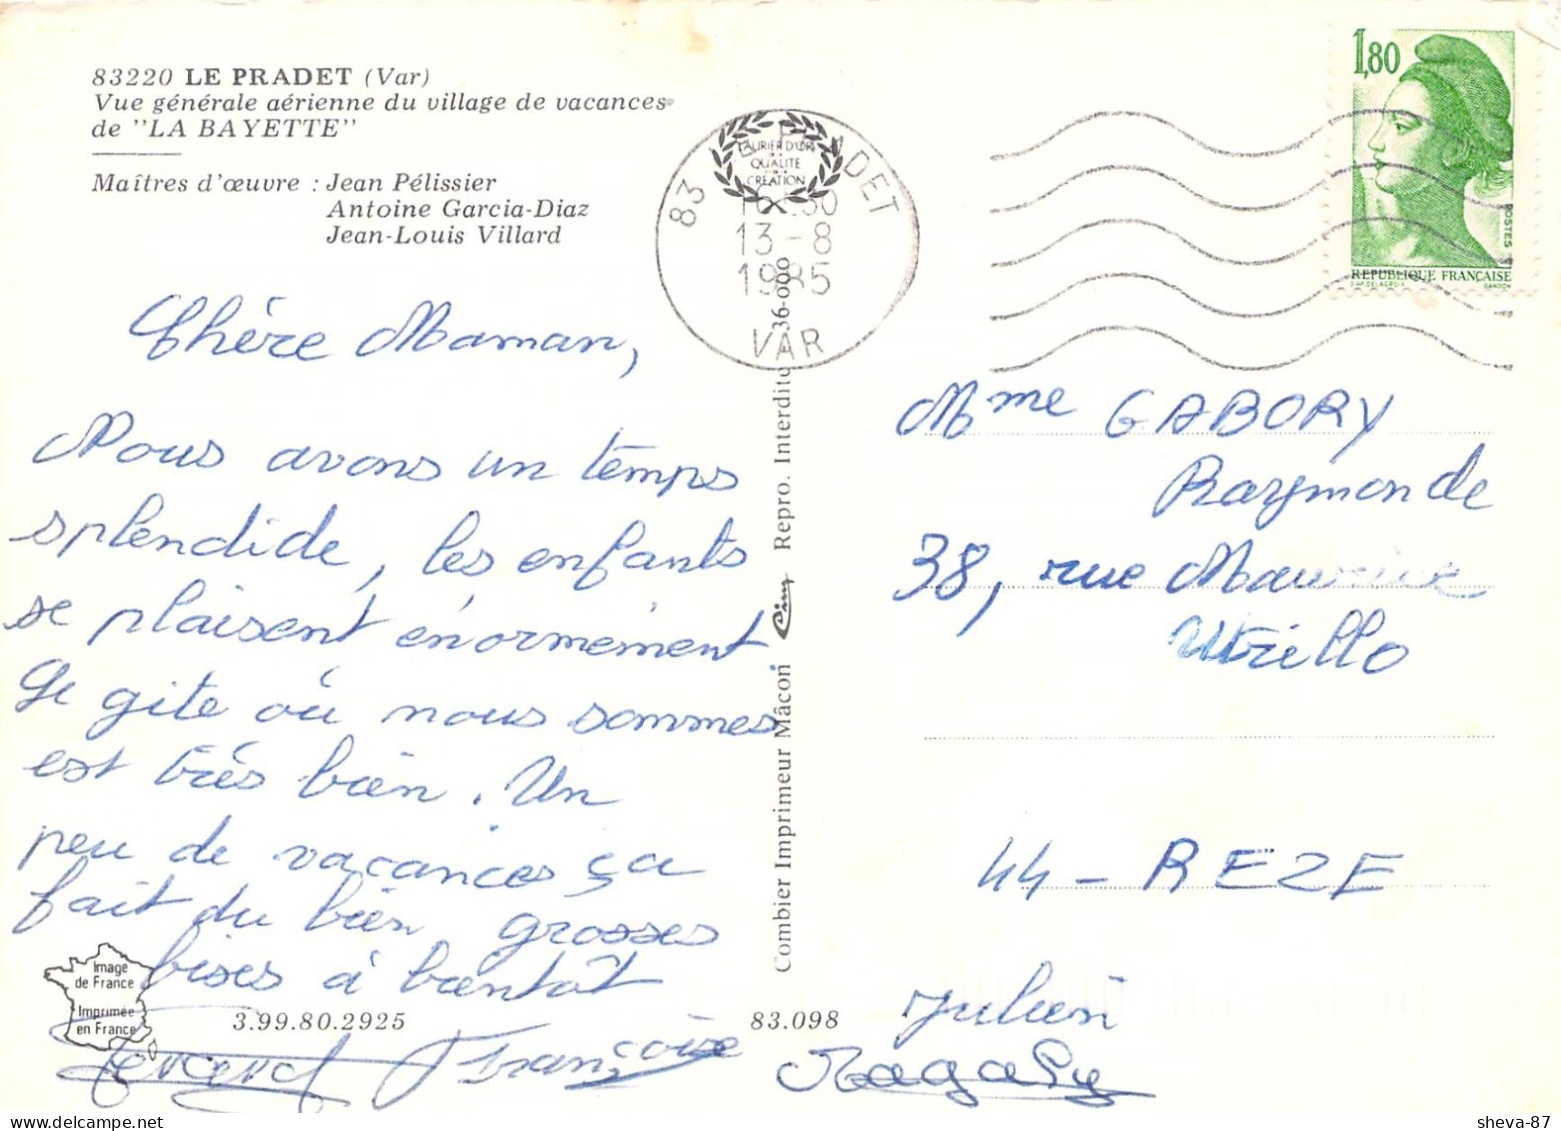 83220 LE PRADET (Var)
Vue générale aérienne du village de vacances
de "LA BAYETTE"
Maîtres d'œuvre : Jean Pélissier
Antoine Garcia-Diaz
Jean-Louis Villard
LAURIER D'OR
QUALITE
CREATION
83 LE PRADET
13-8
1985
VAR
1,80
POSTES
REPUBLIQUE FRANÇAISE
Chère Maman,
Nous avons un temps
splendide, les enfants
se plaisent énormément
Le gite où nous sommes
est très bien. Un
peu de vacances ça
fait du bien grosses
bises à bientôt
Françoise
Julien
Magaly
Mme GABORY
Raymonde
38, rue Maurice
Utrillo
44 - REZE
Combier Imprimeur Mâcon Cim Repro. Interdite 36-000
Image
de France
Imprimée
en France
3.99.80.2925
83.098
sheva-87